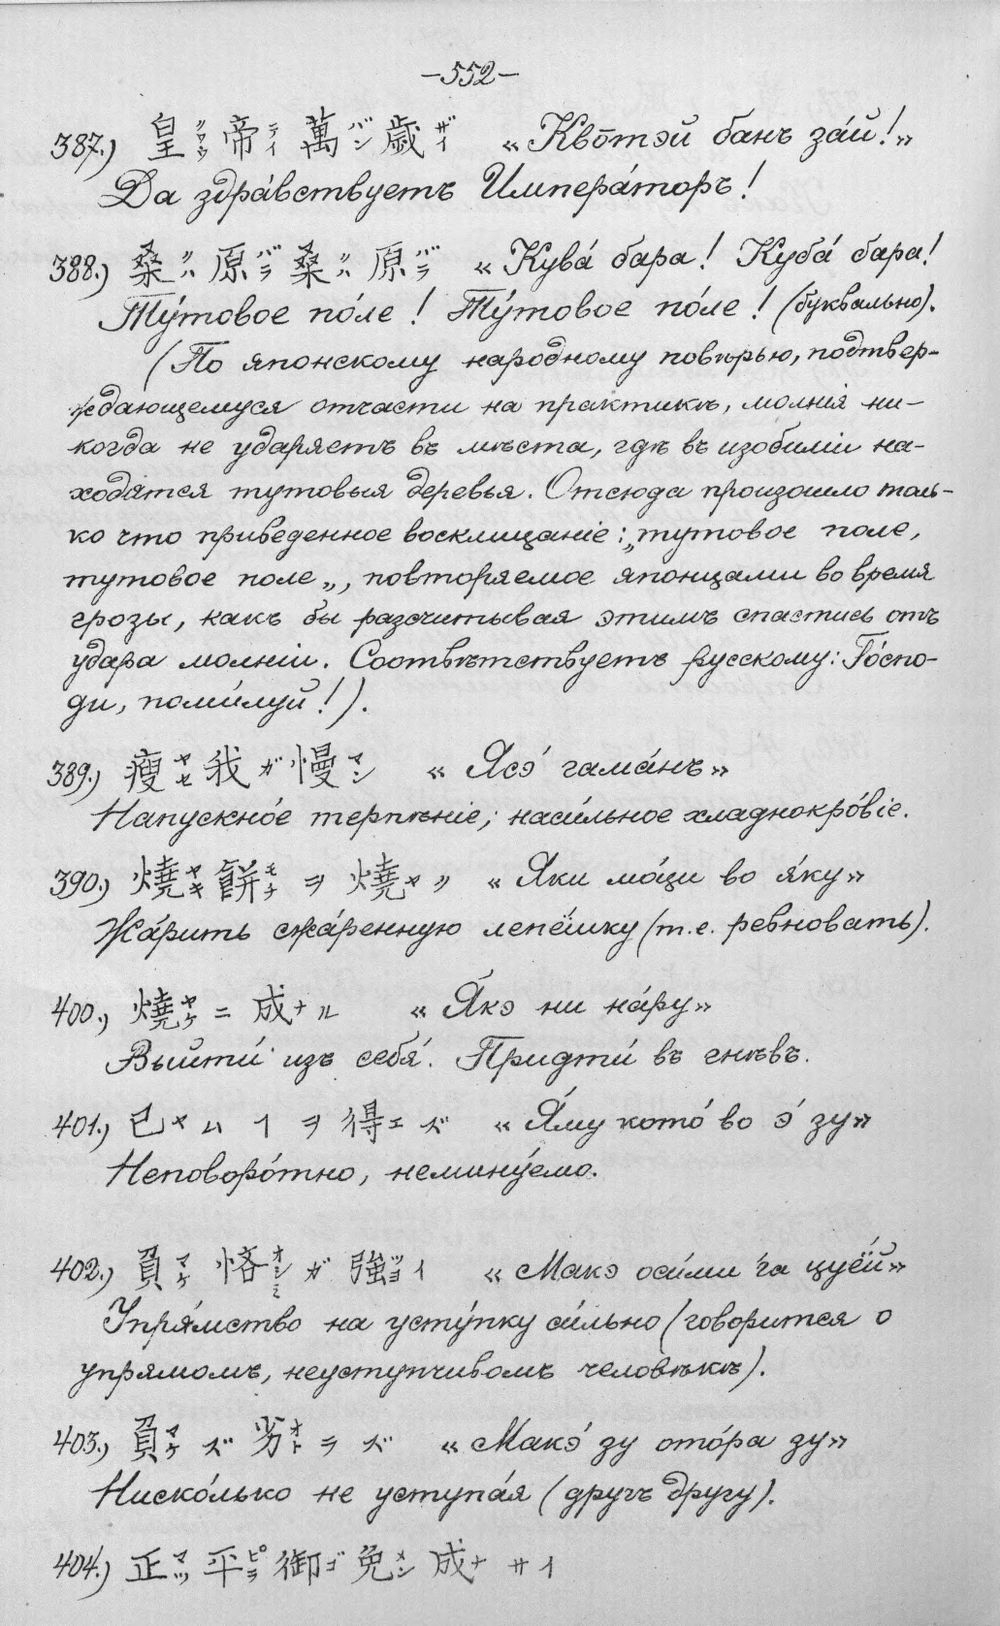 —552—
387.) 皇クワウ帝テイ萬バン歳ザイ «Квōтэй банъ за́й!»
Да здра́вствуетъ Импера́торъ!
388.) 桑クハ原バラ桑クハ原バラ «Кува́ бара! Куба́ бара!
Ту́товое по́ле! Ту́товое по́ле! (буквально).
(По японскому народному повѣрью, подтвер-
ждающемуся отчасти на практикѣ, молнія ни-
когда не ударяетъ въ мѣста, гдѣ въ изобиліи на-
ходятся тутовыя деревья. Отсюда произошло толь-
ко что приведенное восклицаніе: „тутовое поле,
тутовое поле„, повторяемое японцами во время
грозы, какъ бы разсчитывая этимъ спастись отъ
удара молніи. Соотвѣтствуетъ русскому: Го́спо-
ди, поми́луй!).
389.) 瘦ヤセ我ガ慢マン «Ясэ́ гама́нъ»
Напускно́е терпѣніе; наси́льное хладнокро́віе.
390.) 燒ヤキ餅モチヲ燒ヤク «Яки мо́ци во я́ку»
Жа́рить сжа́ренную лепёшку (т.е. ревновать).
400.) 燒ヤケニ成ナル «Я́кэ ни на́ру»
Выйти́ изъ себя́. Придти́ въ гнѣвъ.
401.) 已ヤムヿヲ得エズ «Я́му кото́ во э́ зу»
Неповоро́тно, немину́емо.
402.) 負マケ悋オシミガ強ツヨイ «Макэ оси́ми га цуё́й»
Упря́мство на усту́пку си́льно (говорится о
упрямомъ, неуступчивомъ человѣкѣ).
403.) 負マケズ劣オトラズ «Макэ́ зу ото́ра зу»
Ниско́лько не уступа́я (другъ другу).
404.) 正マツ平ピラ御ゴ免メン成ナサイ